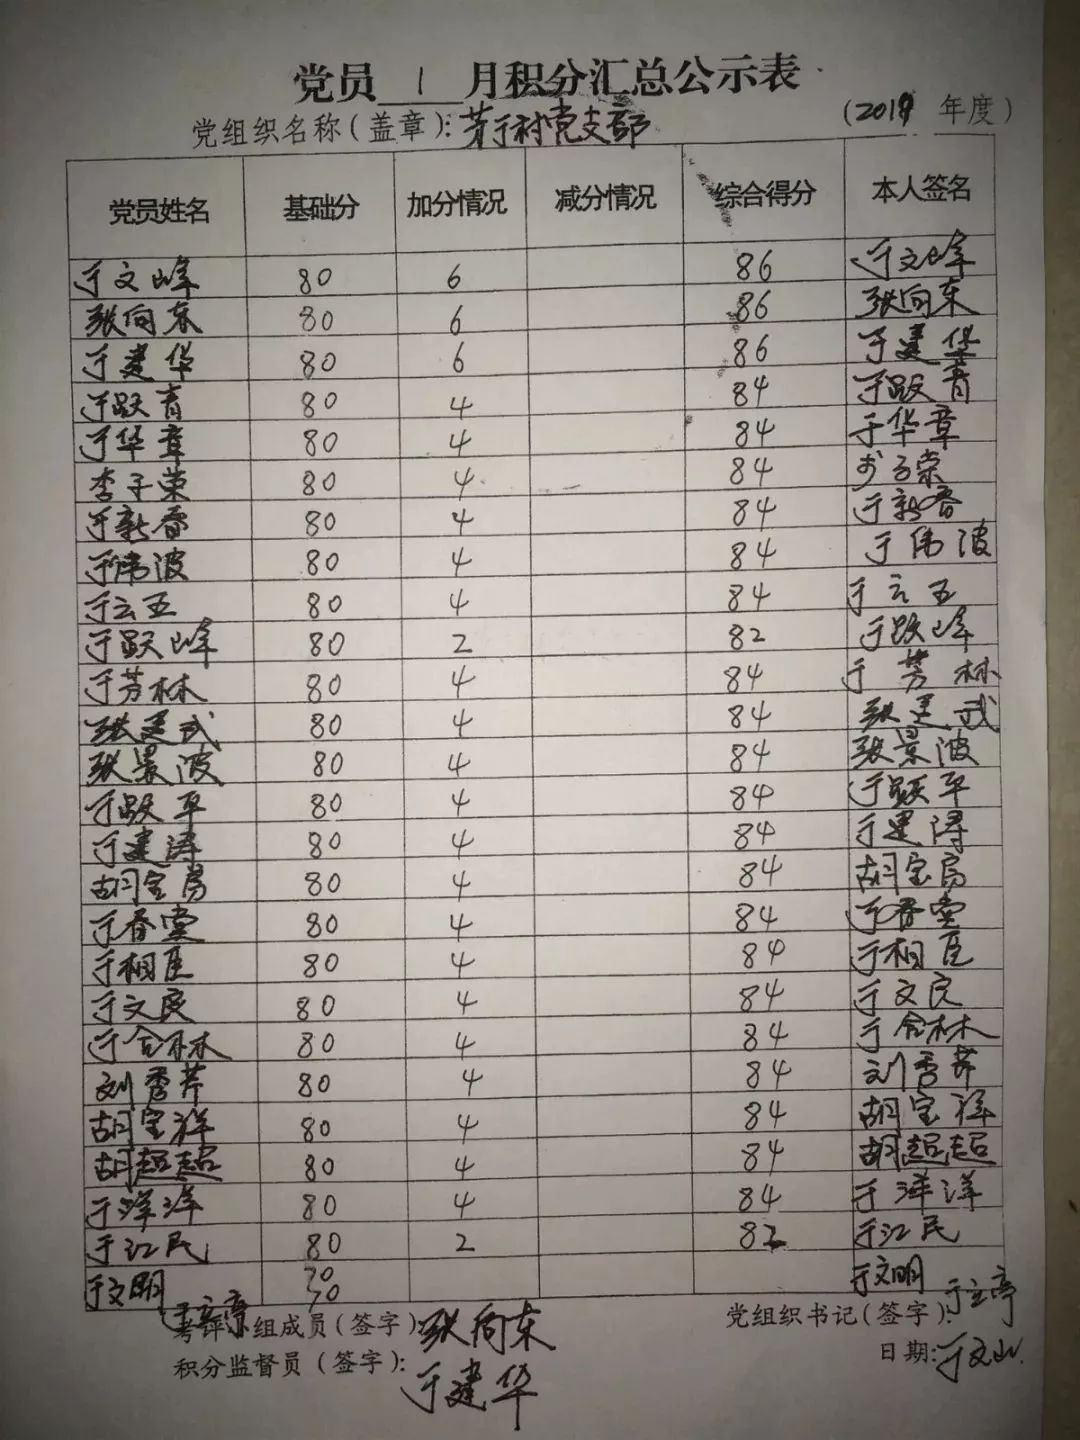 党员 1 月积分汇总公示表
党组织名称(盖章): 于村党支部 (2019 年度)
党员姓名 基础分 加分情况 减分情况 综合得分 本人签名
于文峰 80 6 86 于文峰
张向东 80 6 86 张向东
于建华 80 6 86 于建华
于跃青 80 4 84 于跃青
于华章 80 4 84 于华章
李子荣 80 4 84 李子荣
于新春 80 4 84 于新春
于伟波 80 4 84 于伟波
于云五 80 4 84 于云五
于跃峰 80 2 82 于跃峰
于芳林 80 4 84 于芳林
张建武 80 4 84 张建武
张景波 80 4 84 张景波
于跃平 80 4 84 于跃平
于建涛 80 4 84 于建涛
胡宝 80 4 84 胡宝
于春堂 80 4 84 于春堂
于相臣 80 4 84 于相臣
于文良 80 4 84 于文良
于合林 80 4 84 于合林
刘秀芹 80 4 84 刘秀芹
胡宝祥 80 4 84 胡宝祥
胡超超 80 4 84 胡超超
于洋洋 80 4 84 于洋洋
于江民 80 2 82 于江民
于文明 70 70 于文明
考评小组成员(签字): 张向东 党组织书记(签字):
积分监督员(签字): 于建华 日期: